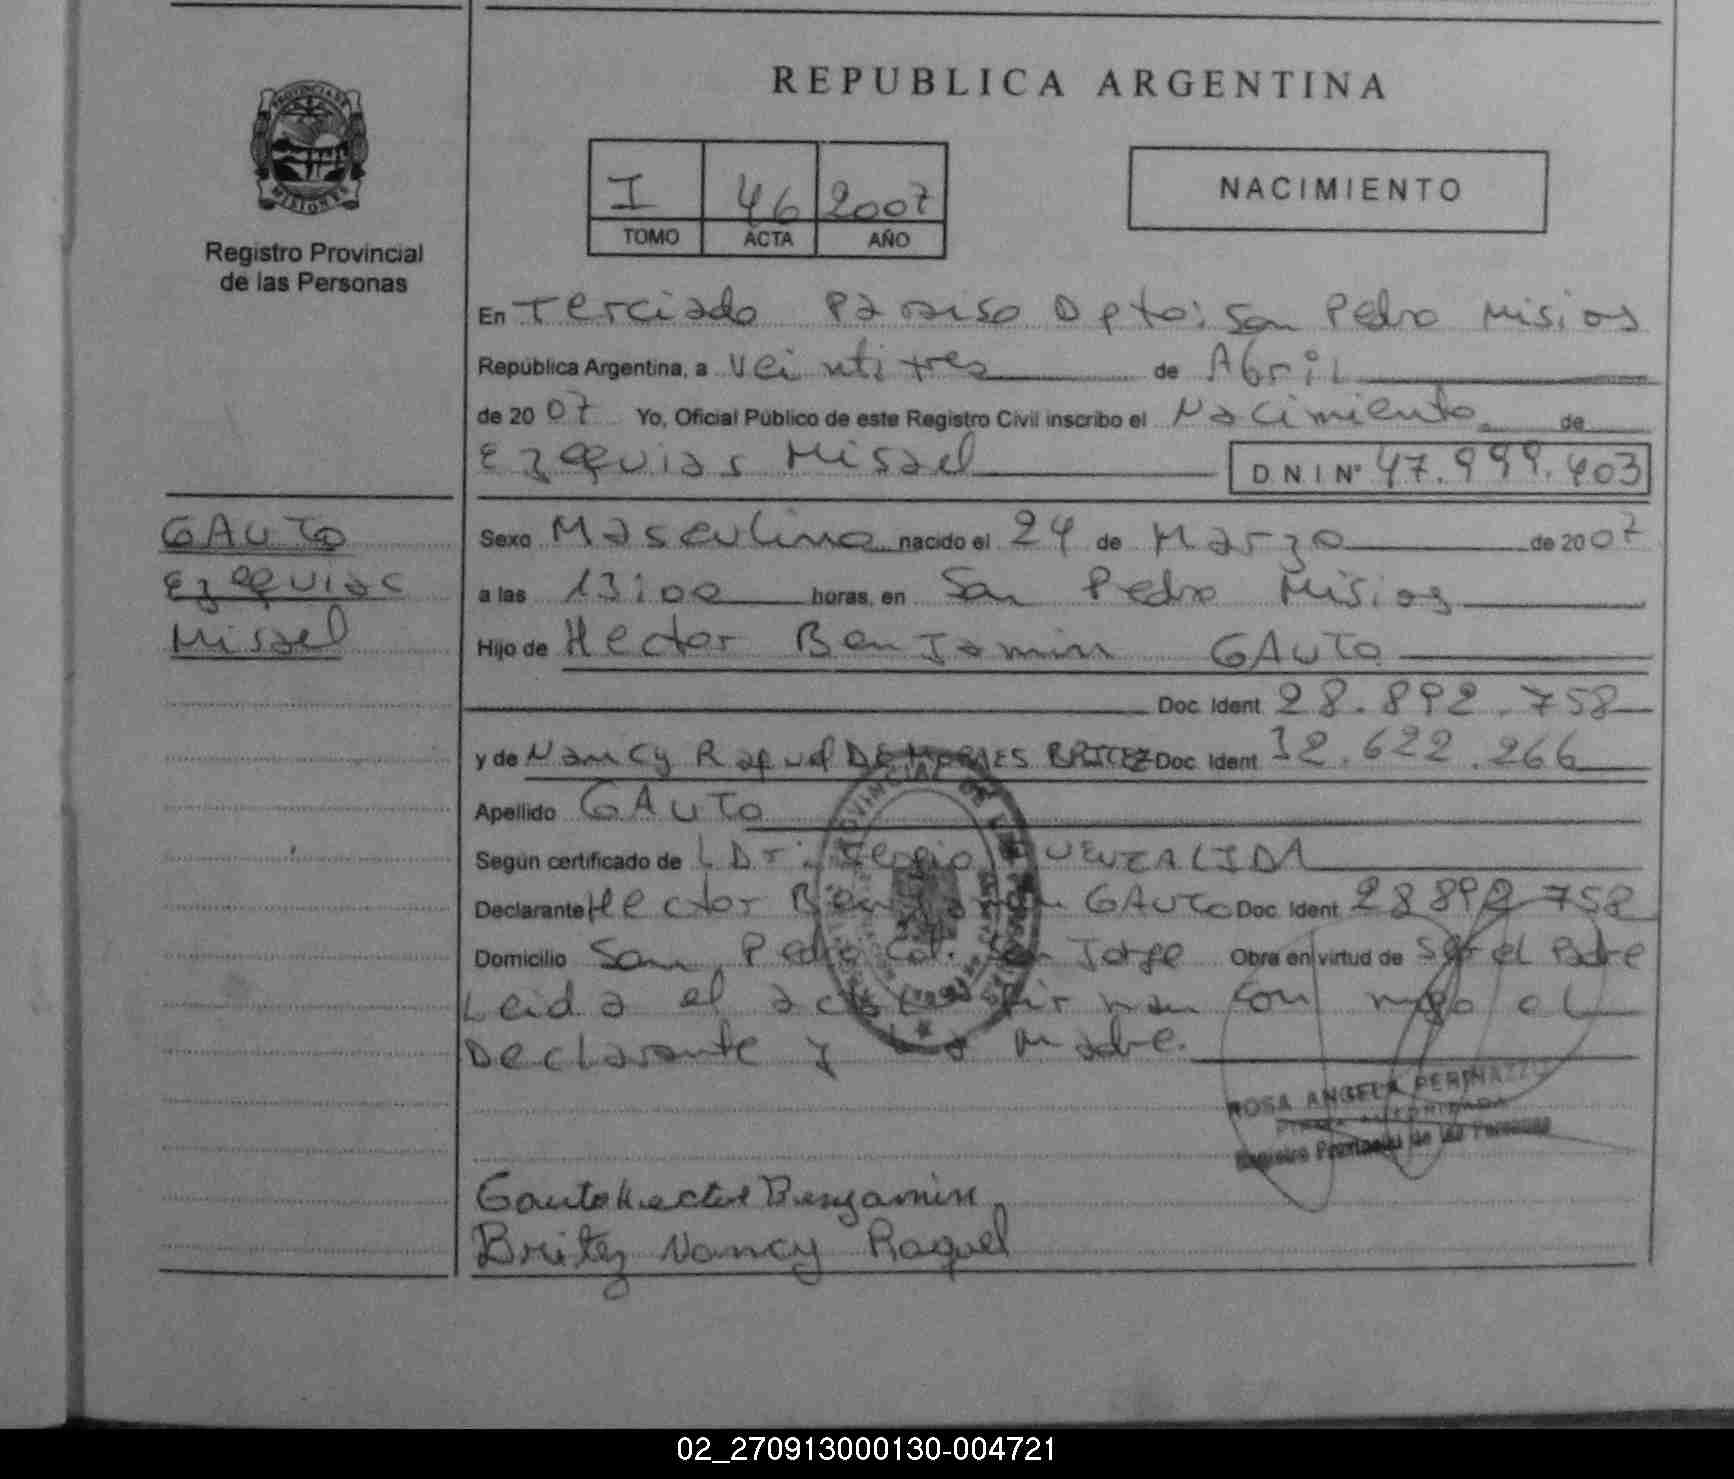 REPUBLICA ARGENTINA
PROVINCIA DE MISIONES
Registro Provincial
de las Personas
I 46 2007
TOMO ACTA AÑO
NACIMIENTO
En Terciado Paraiso Dpto: San Pedro Misios
República Argentina, a veintitres de Abril
de 2007 Yo, Oficial Público de este Registro Civil inscribo el Nacimiento de
Ezequias Misael D N I Nº 47.999.403
GAUTO
Ezequias
Misael
Sexo Masculino nacido el 24 de Marzo de 2007
a las 13:00 horas, en San Pedro Misios
Hijo de Hector Benjamin GAUTO
Doc. Ident. 28.892.758
y de Nancy Raquel DE MORAES BRITEZ Doc. Ident. 32.622.266
Apellido GAUTO
Según certificado de Dr: Sergio
Declarante Hector Benjamin GAUTO Doc. Ident. 28892758
Domicilio San Pedro Col. San Jorge Obra en virtud de Ser el Padre
Leida el acta firman con migo el
Declarante y La madre.
ROSA ANGELA
Registro Provincial de las Personas
Gauto Hector Benjamin
Britez Nancy Raquel
02_270913000130-004721